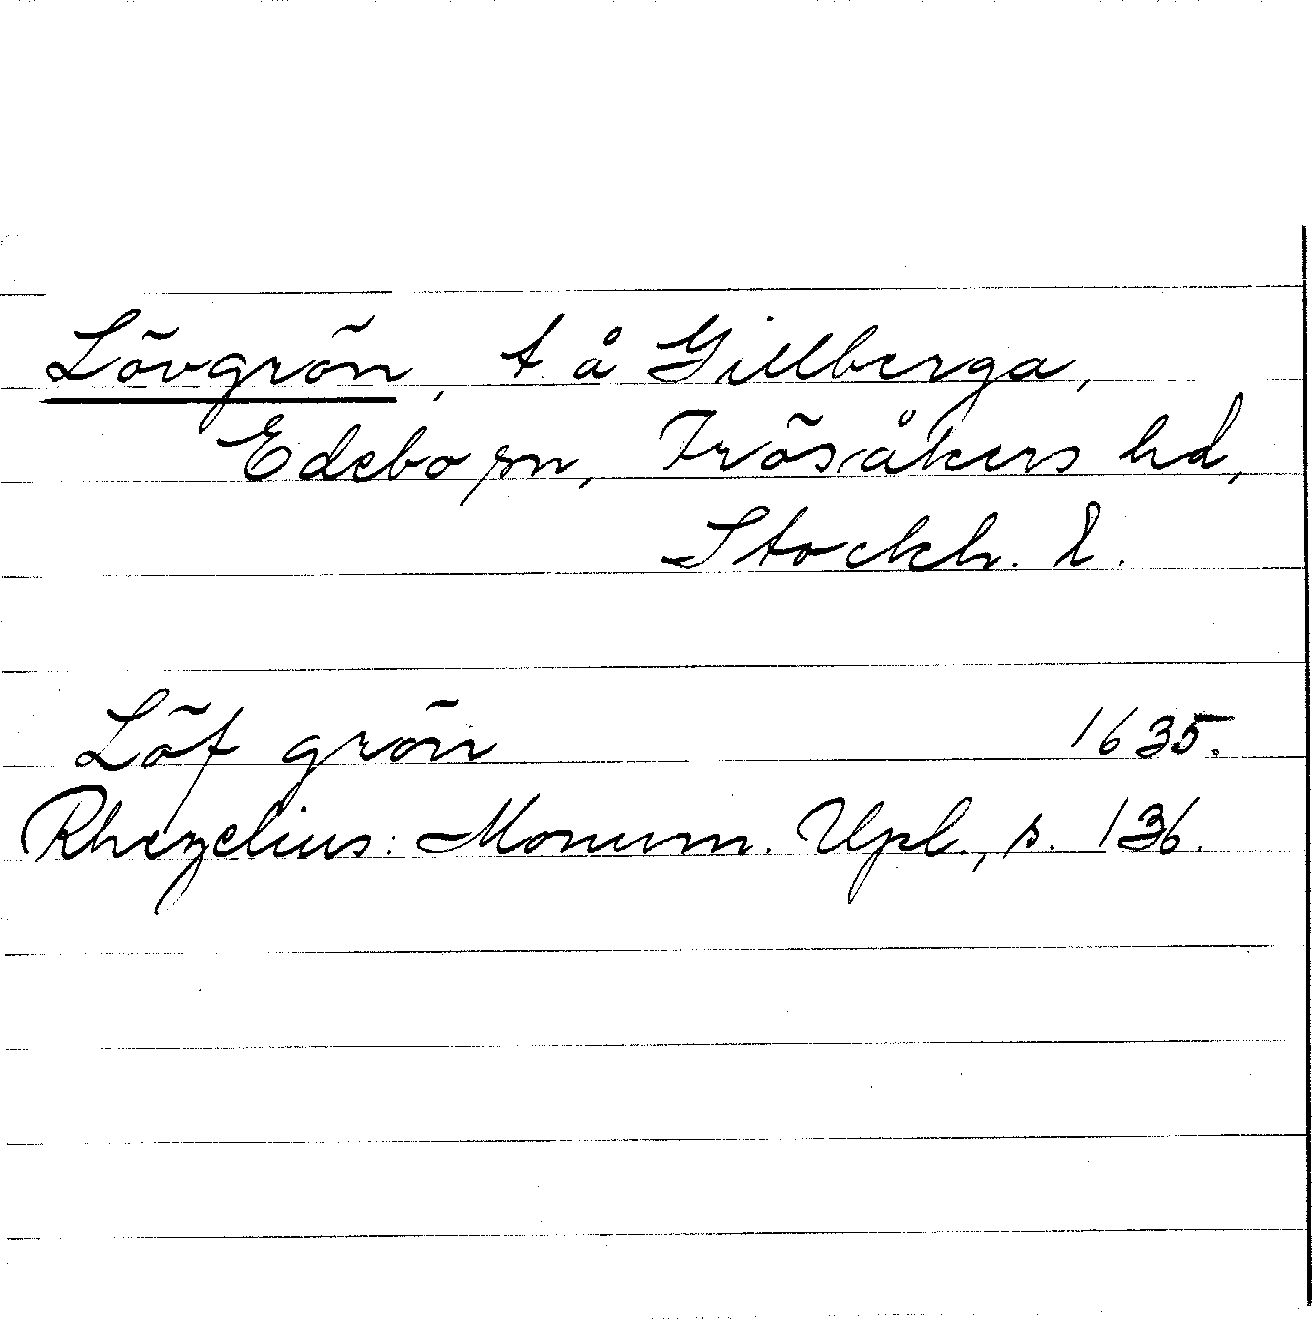 Lövgrön, t å Gillberga,
Edebo sn, Frösåkers hd,
Stockh. l.
Löf grön 1635.
Rhezelius: Monum. Upl., s. 136.